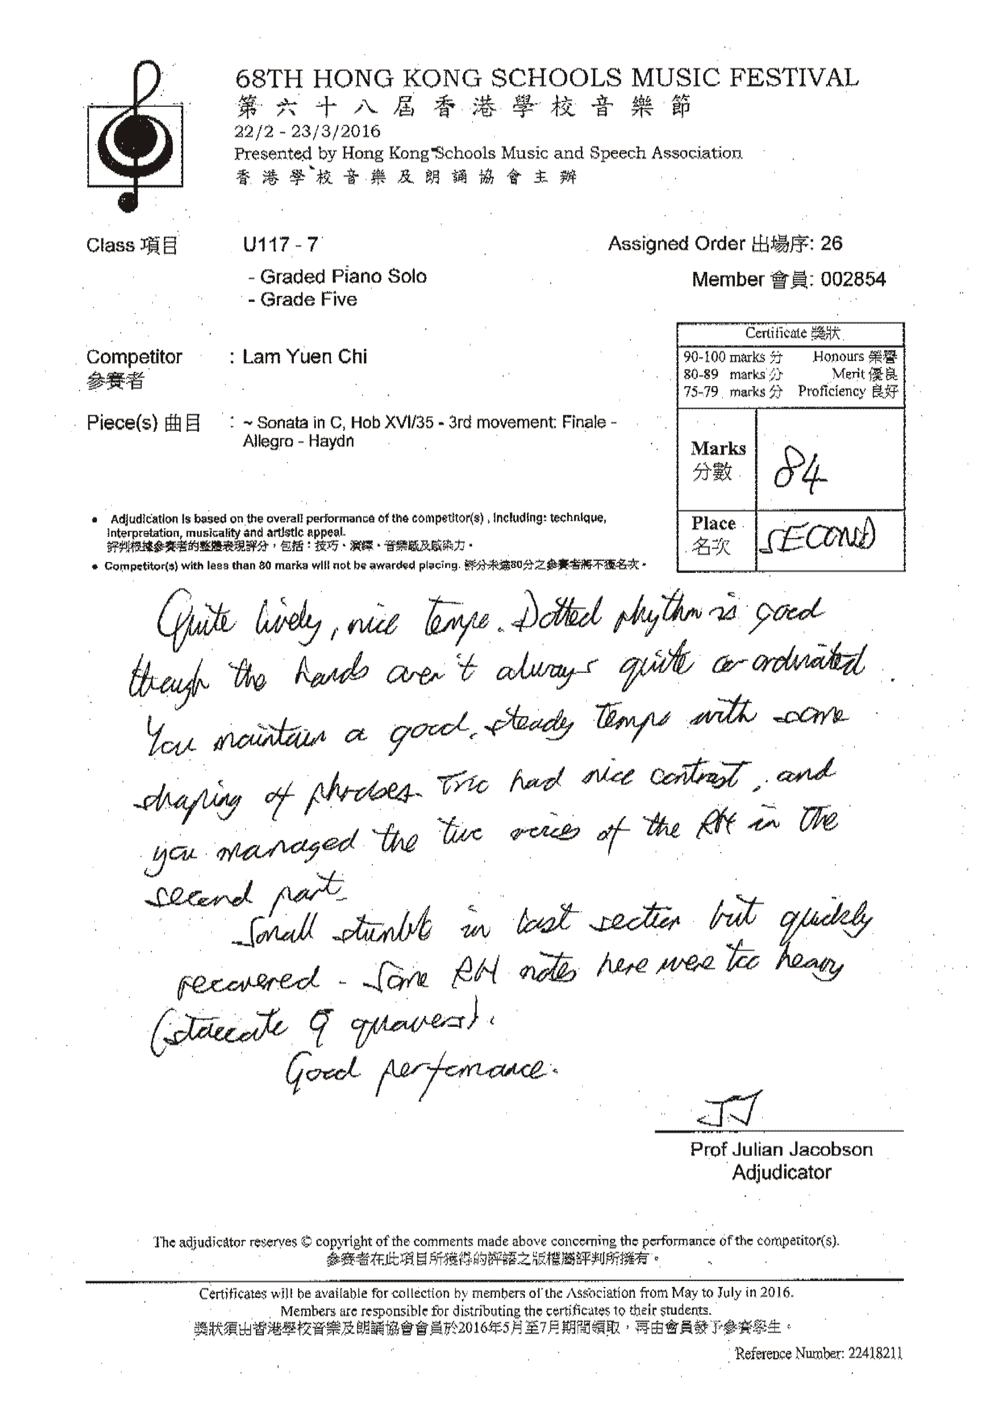 68TH HONG KONG SCHOOLS MUSIC FESTIVAL
第六十八屆香港學校音樂節
22/2 - 23/3/2016
Presented by Hong Kong Schools Music and Speech Association
香港學校音樂及朗誦協會主辦
Class 項目 U117 - 7 Assigned Order 出場序: 26
- Graded Piano Solo Member 會員: 002854
- Grade Five
Certificate 獎狀
90-100 marks 分 Honours 榮譽
80-89 marks 分 Merit 優良
75-79 marks 分 Proficiency 良好
Competitor : Lam Yuen Chi
參賽者
Piece(s) 曲目 : ~ Sonata in C, Hob XVI/35 - 3rd movement: Finale -
Allegro - Haydn
Marks
分數 84
Place
名次 SECOND
• Adjudication is based on the overall performance of the competitor(s) , including: technique,
interpretation, musicality and artistic appeal.
評判根據參賽者的整體表現評分，包括：技巧、演繹、音樂感及感染力。
• Competitor(s) with less than 80 marks will not be awarded placing. 評分未達80分之參賽者將不獲名次。
Quite lively, nice tempo. Dotted rhythm is good
though the hands aren't always quite co-ordinated.
You maintain a good, steady tempo with some
shaping of phrases. Trio had nice contrast, and
you managed the two voices of the RH in the
second part.
Small stumble in last section but quickly
recovered - Some RH notes here were too heavy
(staccato quavers).
Good performance.
JJ
Prof Julian Jacobson
Adjudicator
The adjudicator reserves © copyright of the comments made above concerning the performance of the competitor(s).
參賽者在此項目所獲得的評語之版權屬評判所擁有。
Certificates will be available for collection by members of the Association from May to July in 2016.
Members are responsible for distributing the certificates to their students.
獎狀須由香港學校音樂及朗誦協會會員於2016年5月至7月期間領取，再由會員發予參賽學生。
Reference Number: 22418211